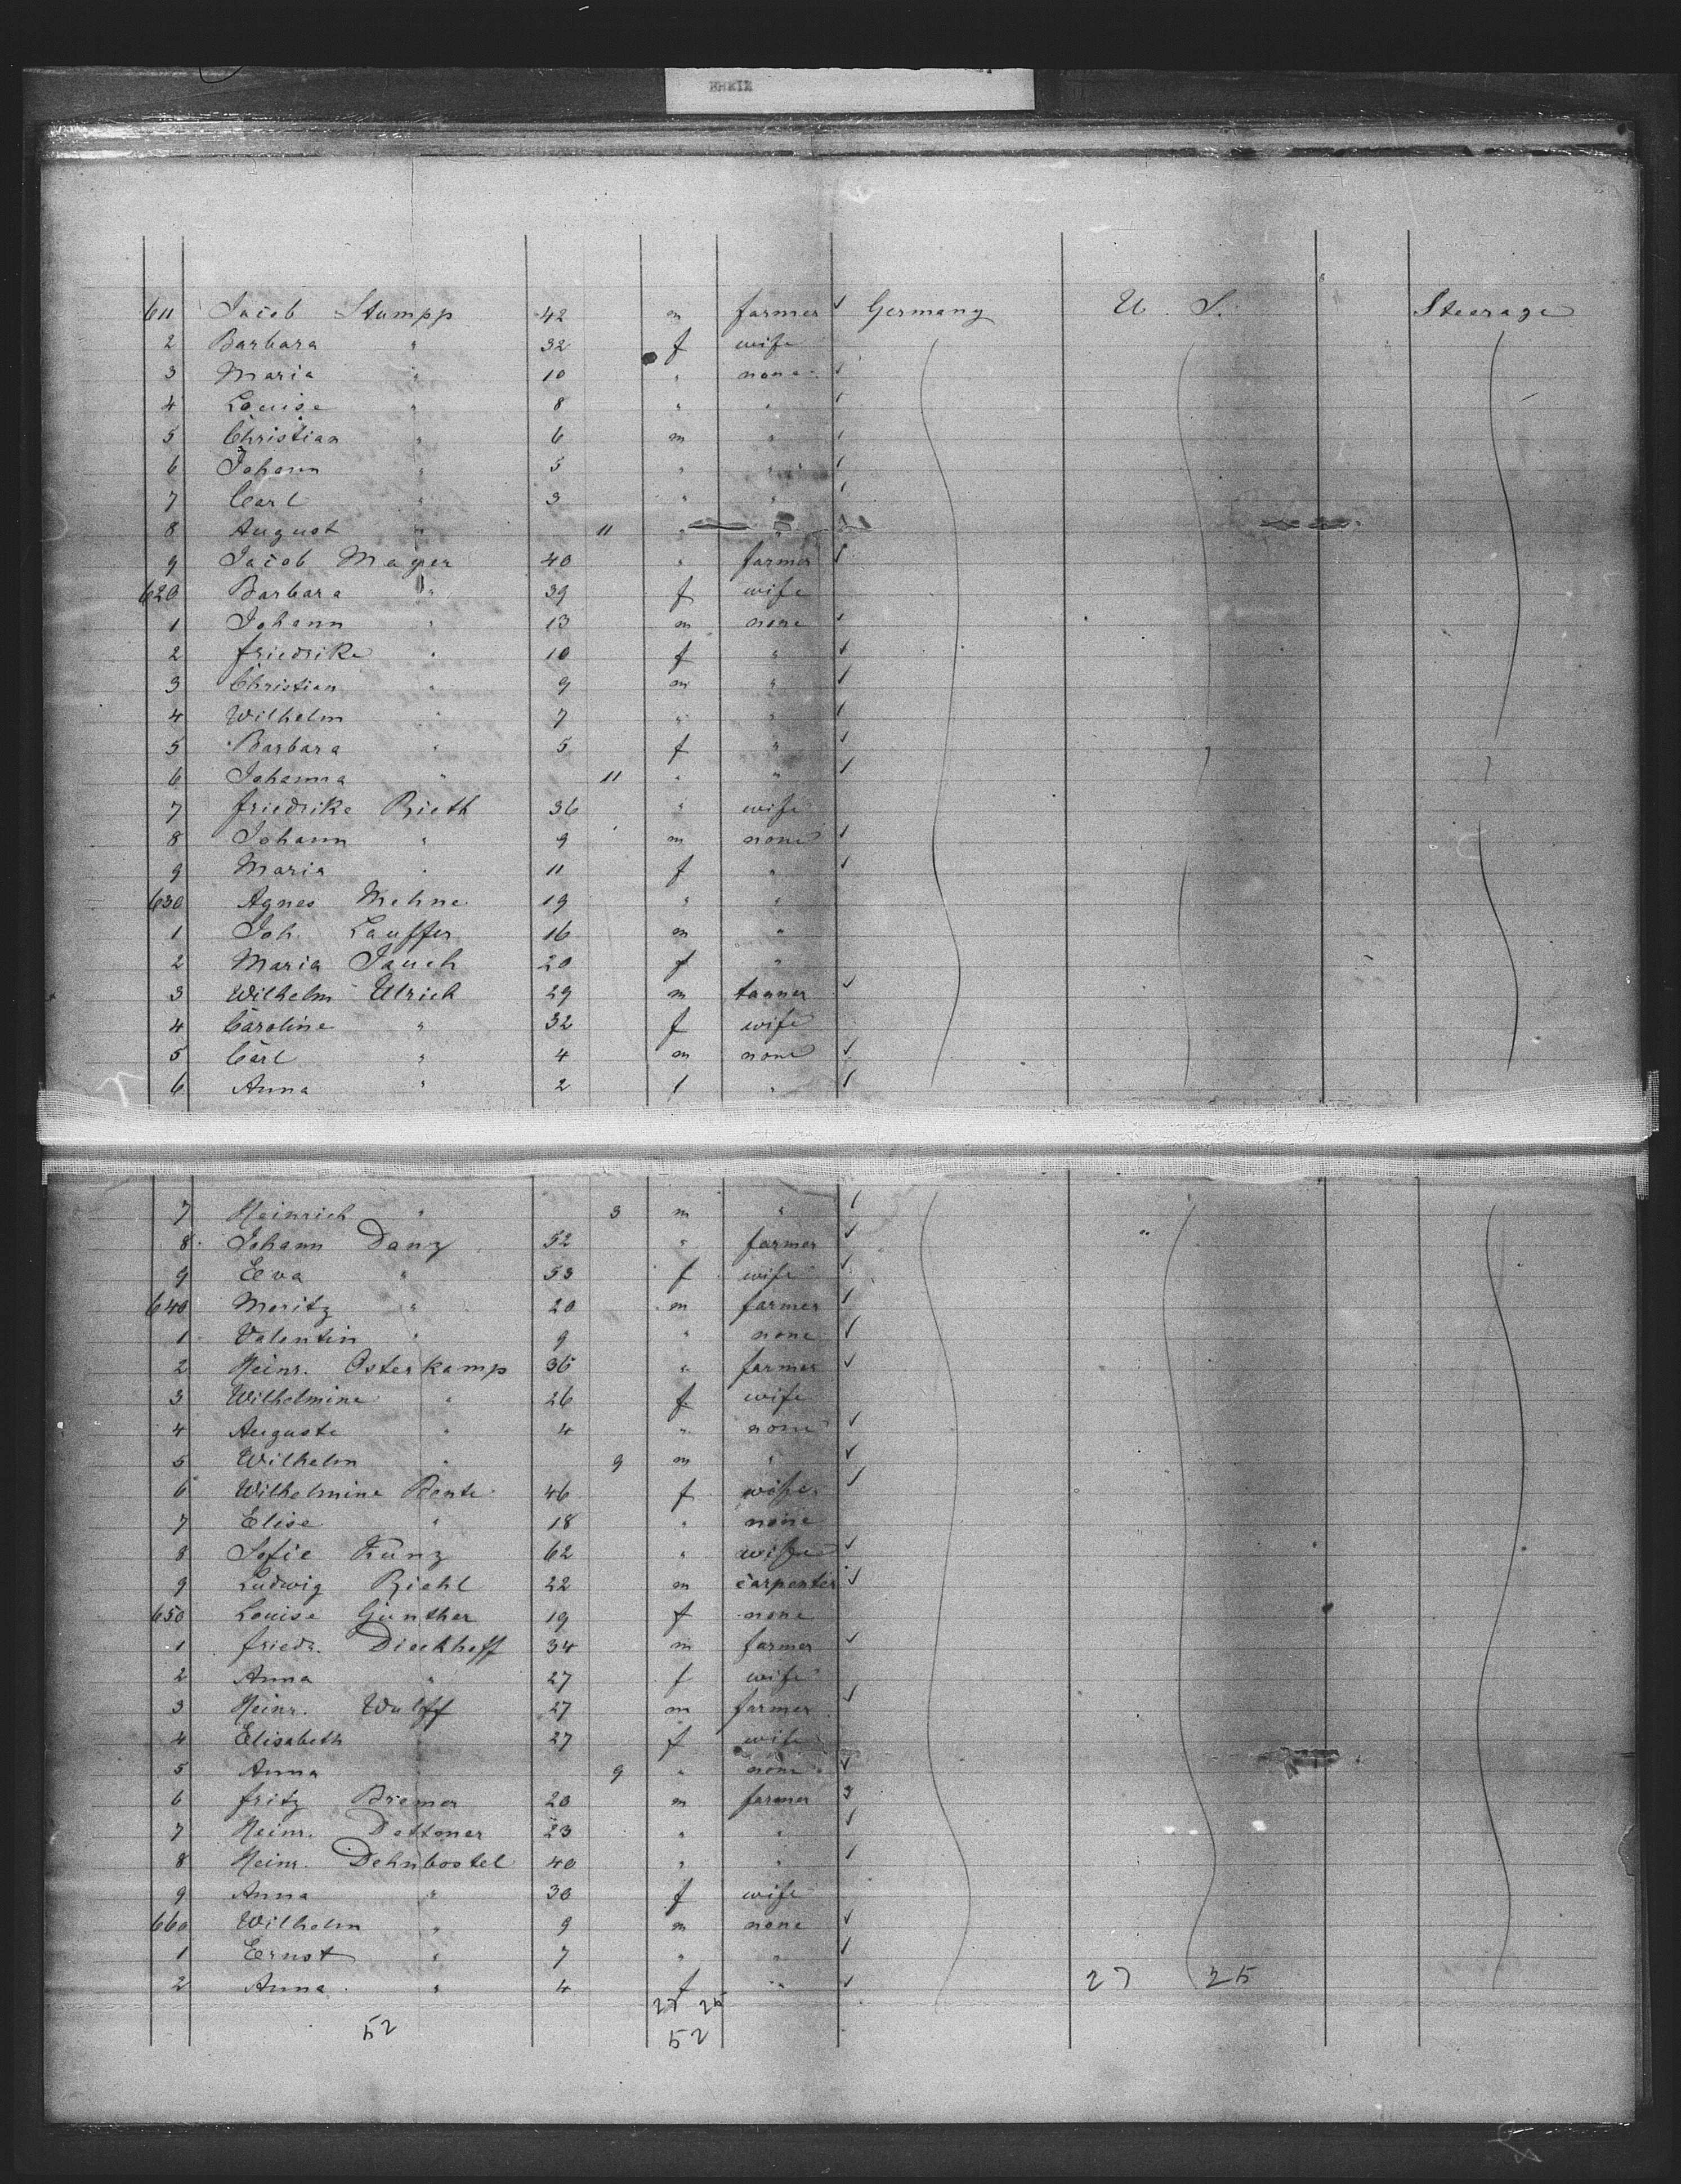 611 Jacob Stumpp 42 m farmer ✓ Germany U. S. Steerage
2 Barbara " 32 f wife
3 Maria " 10 " none ✓
4 Louise " 8 " " ✓
5 Christian " 6 m " ✓
6 Johann " 5 " " ✓
7 Carl " 3 " " ✓
8 August " 11 " "
9 Jacob Mayer 40 " farmer ✓
620 Barbara " 39 f wife
1 Johann " 13 m none ✓
2 Friedrike " 10 f " ✓
3 Christian " 9 m " ✓
4 Wilhelm " 7 " " ✓
5 Barbara " 5 f " ✓
6 Johanna " 11 " " ✓
7 Friedrike Rieth 36 " wife
8 Johann " 9 m none ✓
9 Maria " 11 f " ✓
630 Agnes Mehne 19 " "
1 Joh. Lauffer 16 m "
2 Maria Jauch 20 f "
3 Wilhelm Ulrich 29 m tanner ✓
4 Caroline " 32 f wife
5 Carl " 4 m none ✓
6 Anna " 2 f " ✓
7 Heinrich " 3 m " ✓
8 Johann Danz 52 " farmer ✓
9 Eva " 53 f wife ✓
640 Moritz " 20 m farmer ✓
1 Valentin " 9 " none ✓
2 Heinr. Osterkamp 36 " farmer ✓
3 Wilhelmine " 26 f wife
4 Auguste " 4 " none ✓
5 Wilhelm " 9 m " ✓
6 Wilhelmine Bente 46 f wife ✓
7 Elise " 18 " none
8 Sofie Kunz 62 " wife ✓
9 Ludwig Riehl 22 m carpenter ✓
650 Louise Günther 19 f none
1 Friedr. Dieckhoff 34 m farmer ✓
2 Anna " 27 f wife
3 Heinr. Wulff 27 m farmer ✓
4 Elisabeth " 27 f wife
5 Anna " 9 " none ✓
6 Fritz Bremer 20 m farmer
7 Heinr. Dettmer 23 " " ✓
8 Heinr. Dehnbostel 40 " " ✓
9 Anna " 30 f wife
660 Wilhelm " 9 m none ✓
1 Ernst " 7 " " ✓
2 Anna " 4 f " ✓ 27 25
27 25
52 52